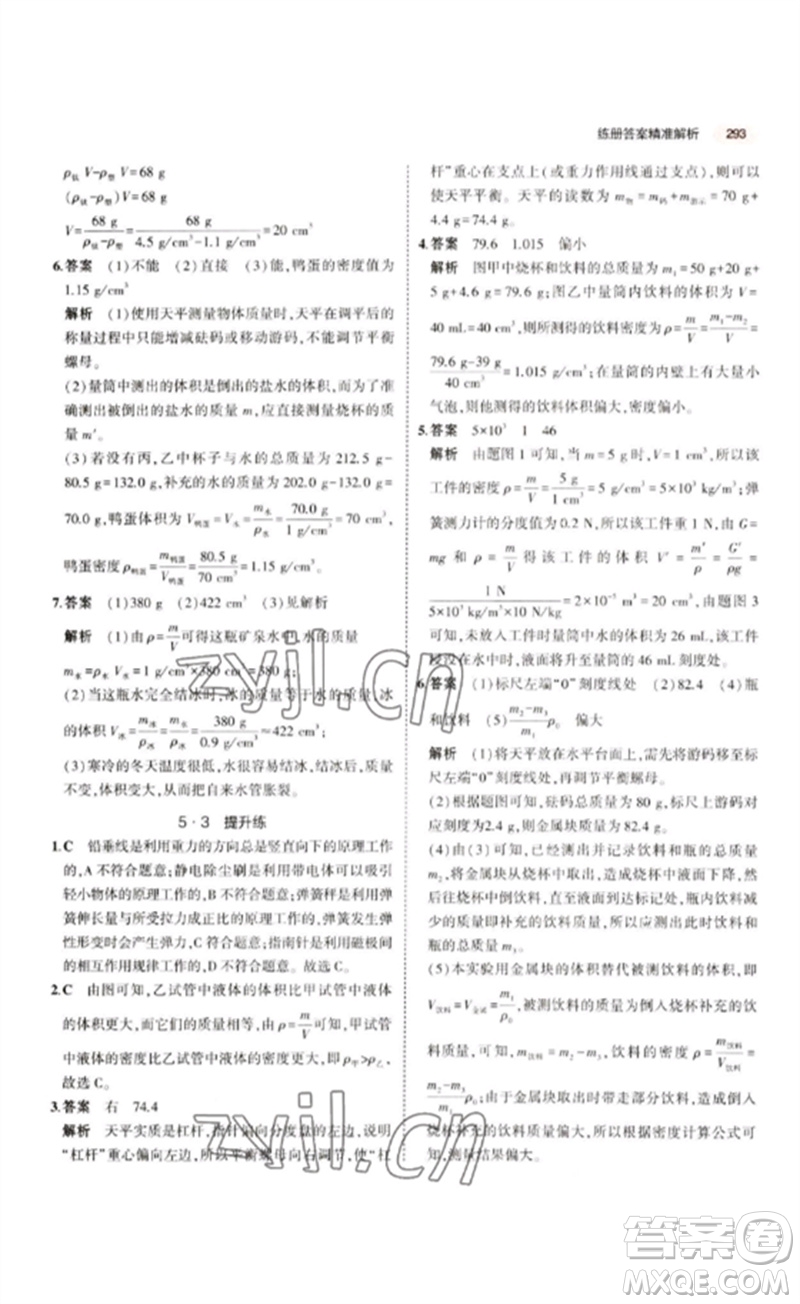 练册答案精准解析 293
ρ钛 V-ρ塑 V=68 g
(ρ钛-ρ塑)V=68 g
V=68 g/(ρ钛-ρ塑)=68 g/(4.5 g/cm³-1.1 g/cm³)=20 cm³
6.答案 (1)不能 (2)直接 (3)能,鸭蛋的密度值为
1.15 g/cm³
解析 (1)使用天平测量物体质量时,天平在调平后的
称量过程中只能增减砝码或移动游码,不能调节平衡
螺母。
(2)量筒中测出的体积是倒出的盐水的体积,而为了准
确测出被倒出的盐水的质量 m,应直接测量烧杯的质
量 m'。
(3)若没有丙,乙中杯子与水的总质量为 212.5 g-
80.5 g=132.0 g,补充的水的质量为 202.0 g-132.0 g=
70.0 g,鸭蛋体积 V鸭蛋=V水=m水/ρ水=70.0 g/(1 g/cm³)=70 cm³,
鸭蛋密度 ρ鸭蛋=m鸭蛋/V鸭蛋=80.5 g/70 cm³=1.15 g/cm³。
7.答案 (1)380 g (2)422 cm³ (3)见解析
解析 (1)由 ρ=m/V 可得这瓶矿泉水中水的质量
m水=ρ水V水=1 g/cm³×380 cm³=380 g;
(2)当这瓶水完全结冰时,冰的质量等于水的质量,冰
的体积 V冰=m冰/ρ冰=m水/ρ冰=380 g/(0.9 g/cm³)≈422 cm³;
(3)寒冷的冬天温度过低,水易结冰,水结冰后,质量不
变,体积变大,容易将自来水管胀裂。
5·3 提升练
1.C 铅垂线是利用重力的方向总是竖直向下的原理工作
的,A 不符合题意;静电除尘刷是利用带电体可以吸引
轻小物体的原理工作的,B 不符合题意;弹簧秤是利用弹
簧伸长量与所受拉力成正比的原理工作的,弹簧发生弹
性形变时会产生弹力,C 符合题意;指南针是利用磁极间
的相互作用规律工作的,D 不符合题意。故选 C。
2.C 由图可知,乙试管中液体的体积比甲试管中液体
的体积更大,而它们的质量相同,由 ρ=m/V可知,甲试管
中液体的密度比乙试管中液体的密度更大,即 ρ甲>ρ乙。
故选 C。
3.答案 右 74.4
解析 天平实质是杠杆,指针偏向分度盘的左边,说明
“杠杆”重心偏向左边,所以平衡螺母向右调节,使“杠
杆”重心在支点上(或重力作用线通过支点),则可以
使天平平衡。天平的读数为 m物=m码+m指示=70 g+
4.4 g=74.4 g。
4.答案 79.6 1.015 偏小
解析 图甲中烧杯和饮料的总质量为 m₁=50 g+20 g+
5 g+4.6 g=79.6 g;图乙中量筒内饮料的体积为 V=
40 mL=40 cm³,则所测得的饮料密度为 ρ=m/V=(m₁-m₂)/V=
(79.6 g-39 g)/40 cm³=1.015 g/cm³;若量筒的内壁上有大量小
气泡,则他测得的饮料体积偏大,密度偏小。
5.答案 5×10³ 1 46
解析 由题图 1 可知,当 m=5 g 时,V=1 cm³,所以该
工件的密度 ρ=m/V=5 g/1 cm³=5 g/cm³=5×10³ kg/m³;弹
簧测力计的分度值为 0.2 N,所以该工件重 1 N,由 G=
mg 和 ρ=m/V 得该工件的体积 V'=m'/ρ=G'/ρg=
1 N/(5×10³ kg/m³×10 N/kg)=2×10⁻⁵ m³=20 cm³,由题图 3
可知,未放入工件时量筒中水的体积为 26 mL,该工件
浸没在水中时,液面将升至量筒的 46 mL 刻度处。
6.答案 (1)标尺左端“0”刻度线处 (2)82.4 (4)瓶
和饮料 (5)(m₂-m₃)/m₁ ρ₀ 偏大
解析 (1)将天平放在水平台面上,需先将游码移至标
尺左端“0”刻度线处,再调节平衡螺母。
(2)根据题图可知,砝码总质量为 80 g,标尺上游码对
应质量为2.4 g,所以,金属块质量为 82.4 g。
(4)由(2)可知,已经测出并记录饮料瓶的总质量
m₂,将金属块从烧杯中取出,造成液面下降,然
后往烧杯中倒饮料,直至液面到达标记处,瓶内饮料减
少的质量即补充的饮料质量,所以应测出饮料和
瓶的总质量 m₃。
(5)本实验用金属块的体积替代被测饮料的体积,即
V饮料=V金属=m₁/ρ₀,被测饮料的质量为倒入烧杯补充的饮
料质量,可知,m饮料=m₂-m₃,饮料密度为 ρ=m饮料/V饮料=
(m₂-m₃)/m₁ ρ₀;由于金属块取出时带走部分饮料,造成往
烧杯补充的饮料质量偏大,所以根据密度计算公式可
知,测量结果偏大。
zyjl.cn
zyjl.cn
答案圈
MXQE.COM